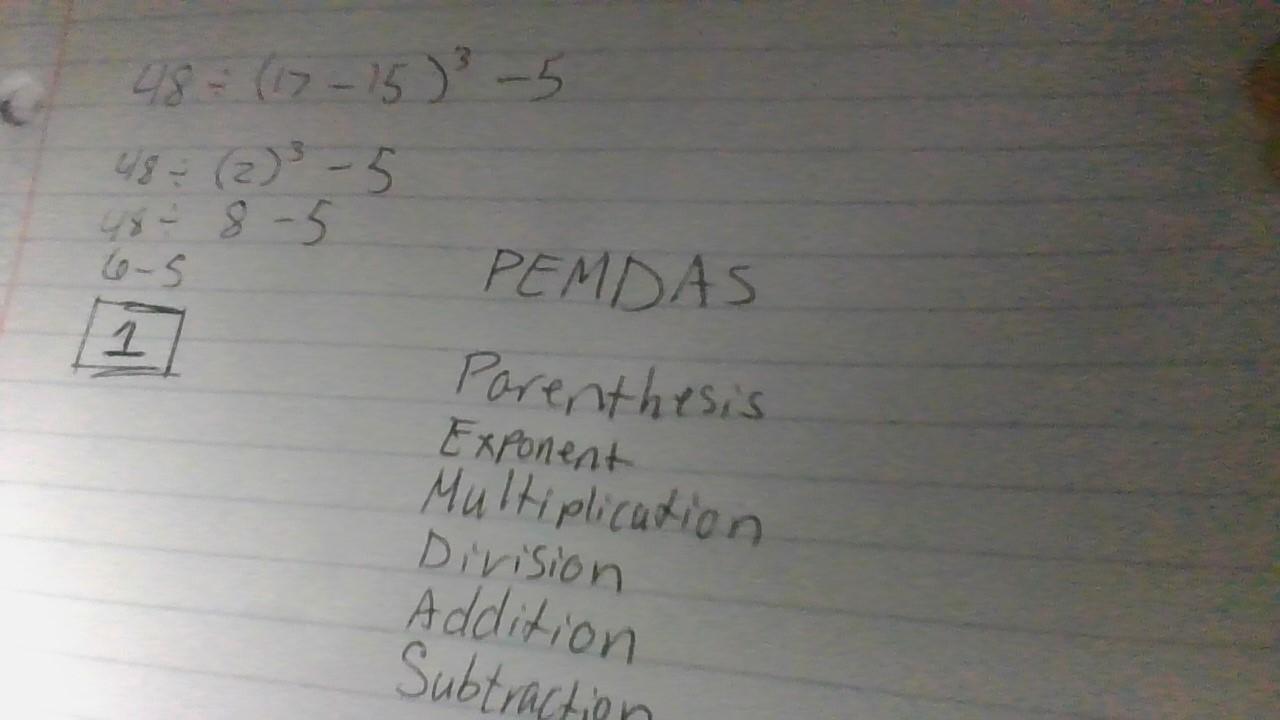 48 ÷ (17 - 15)³ - 5
48 ÷ (2)³ - 5
48 ÷ 8 - 5
6 - 5
1
PEMDAS
Parenthesis
Exponent
Multiplication
Division
Addition
Subtraction